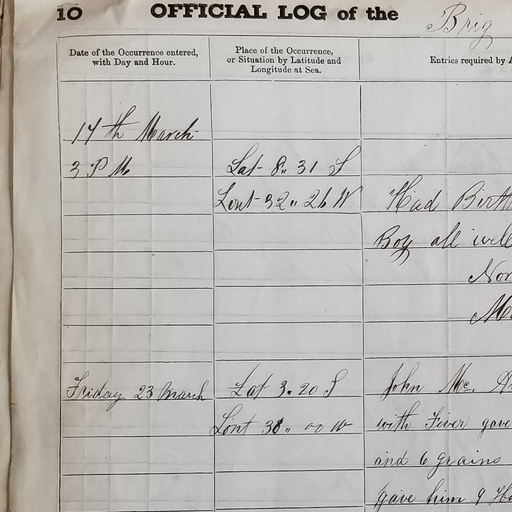 10 OFFICIAL LOG of the Brig
Date of the Occurrence entered, with Day and Hour.
Place of the Occurrence, or Situation by Latitude and Longitude at Sea.
Entries required by A
17th March
3 PM Lat 8" 31 S
Lont 32" 26 W Had Birth
Boy all well
Nor
Friday 23 March Lat 3.20 S John Mc.
Lont 38" 00 W with Fiver gave
and 6 grains
gave him 9